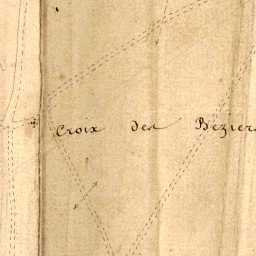 Croix des Beziers